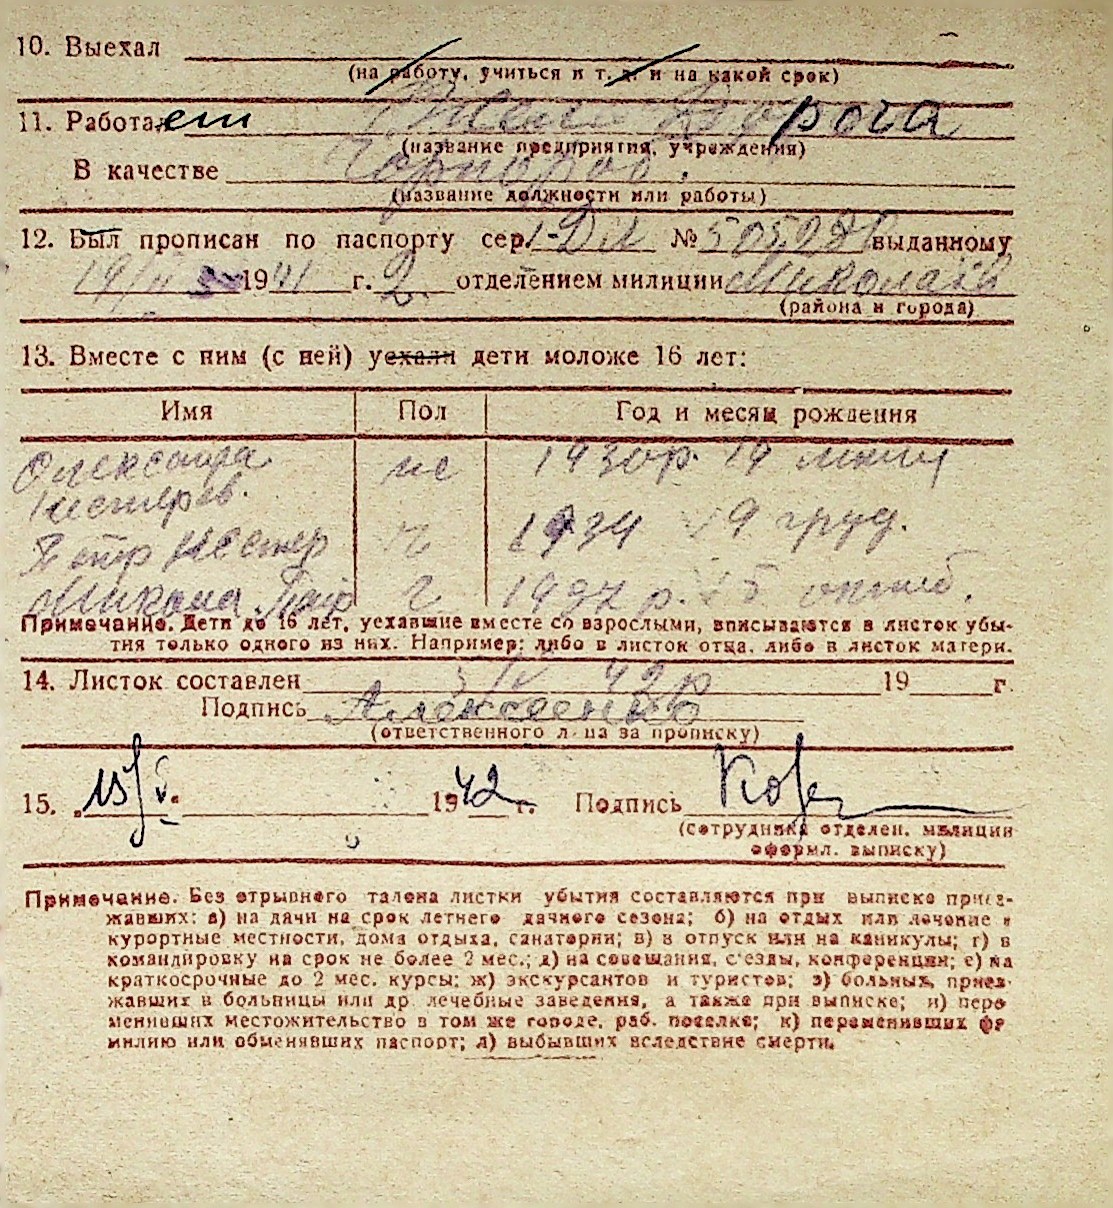 10. Выехал
(на работу, учиться и т. д. и на какой срок)
11. Работает Дорога
(название предприятия, учреждения)
В качестве
(название должности или работы)
12. Был прописан по паспорту сер. № выданному
1941 г. 2 отделением милиции Миколаїв
(района и города)
13. Вместе с ним (с ней) уехали дети моложе 16 лет:
Имя Пол Год и месяц рождения
Олександа 1930 р. 19
Нестеров.
Петр Нестер ч 1934 19 груд.
Микола Петр ч 1937 р. 15 октяб.
Примечание. Дети до 16 лет, уехавшие вместе со взрослыми, вписываются в листок убы-
тия только одного из них. Например: либо в листок отца, либо в листок матери.
14. Листок составлен 5/V 42 р 19 г.
Подпись Алексеенко
(ответственного лица за прописку)
15. 15/V. 1942 г. Подпись
(сотрудника отделен. милиции
оформл. выписку)
Примечание. Без отрывнего талена листки убытия составляются при выписке приез-
жавших: а) на дачи на срок летнего дачного сезона; б) на отдых или лечение в
курортные местности, дома отдыха, санатории; в) в отпуск или на каникулы; г) в
командировку на срок не более 2 мес.; д) на совещания, с'езды, конференции; е) на
краткосрочные до 2 мес. курсы; ж) экскурсантов и туристов; з) больных, приез-
жавших в больницы или др. лечебные заведения, а также при выписке; и) пере
менивших местожительство в том же городе, раб. поселке; к) переменивших фа
милию или обменявших паспорт; л) выбывших вследствие смерти.